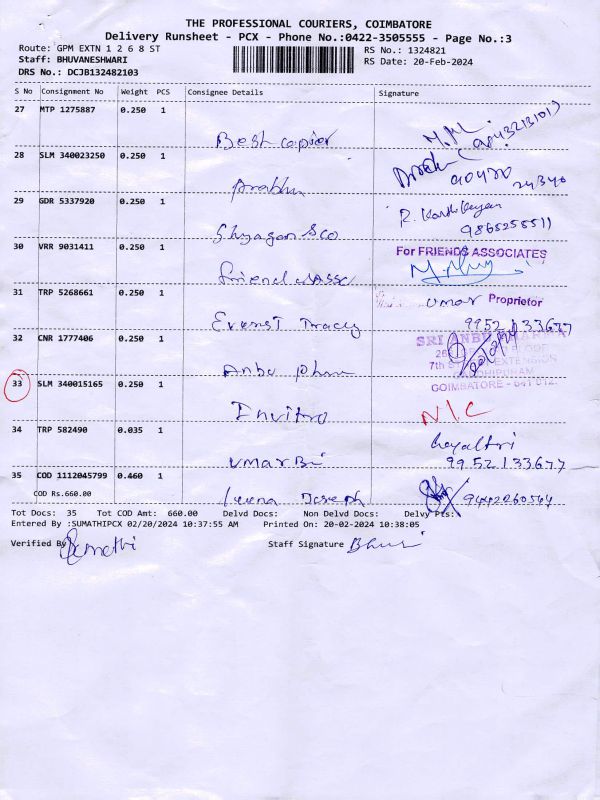 THE PROFESSIONAL COURIERS, COIMBATORE
Delivery Runsheet - PCX - Phone No.:0422-3505555 - Page No.:3
Route: GPM EXTN 1 2 6 8 ST
RS No.: 1324821
Staff: BHUVANESHWARI
RS Date: 20-Feb-2024
DRS No.: DCJB132482103
S No Consignment No Weight PCS Consignee Details Signature
27 MTP 1275887 0.250 1
Best copier
28 SLM 340023250 0.250 1
Prabhu 90420 24340
29 GDR 5337920 0.250 1
Shyagan Sco R. Karthikeyan
9865258511
30 VRR 9031411 0.250 1
For FRIENDS ASSOCIATES
Friends Assc
31 TRP 5268661 0.250 1
umar Proprietor
Everest Tracy 9952133677
32 CNR 1777406 0.250 1
SRI ANBU
20/02/24
7th EXTENSION
Anbu pharm
33 SLM 340015165 0.250 1
COIMBATORE - 641 012.
Invitro N/C
34 TRP 582490 0.035 1
Gayathri
umar Bi 9952133677
35 COD 1112045799 0.460 1
COD Rs.660.00
Leena Joseph 9442260564
Tot Docs: 35 Tot COD Amt: 660.00 Delvd Docs: Non Delvd Docs: Delvy Pts:
Entered By :SUMATHIPCX 02/20/2024 10:37:55 AM Printed On: 20-02-2024 10:38:05
Verified By Sumathi Staff Signature Bhuvi